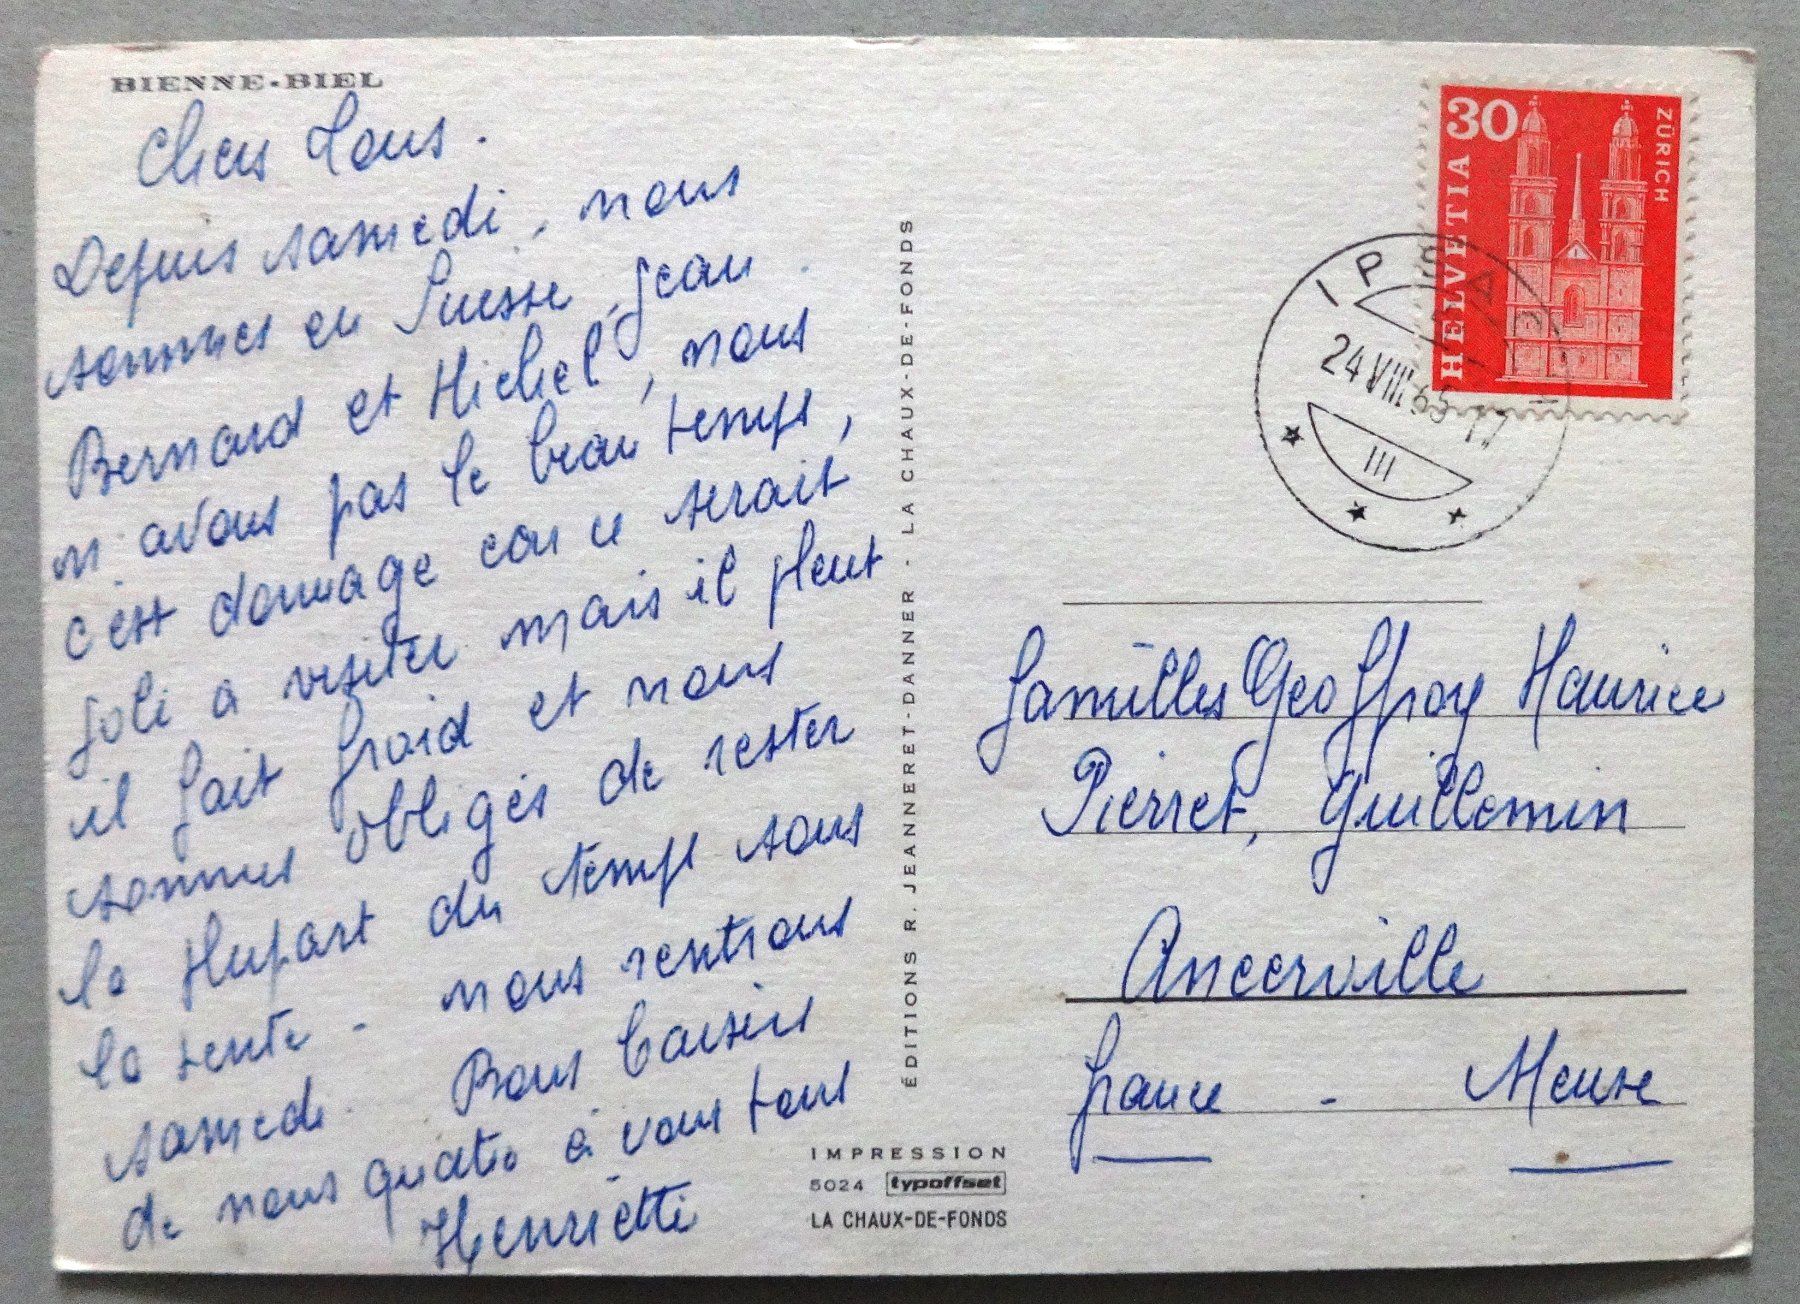 BIENNE-BIEL
Chers Tous.
Depuis samedi, nous
sommes en Suisse, Jean
Bernard et Michel, nous
n'avons pas le beau temps,
c'est domage car ce serait
joli a visiter mais il pleut
il fait froid et nous
sommes obligés de rester
la plupart du temps sous
la tente - nous rentrons
samedi. Bons baisers
de nous quatre à vous tous
Henriette
ÉDITIONS R. JEANNERET-DANNER - LA CHAUX-DE-FONDS
IMPRESSION
5024 typoffset
LA CHAUX-DE-FONDS
30
ZÜRICH
HELVETIA
IPSACH
24.VIII.65-17
III
familles Geoffroy Maurice
Pierret, Guillemin
Ancerville
France - Meuse